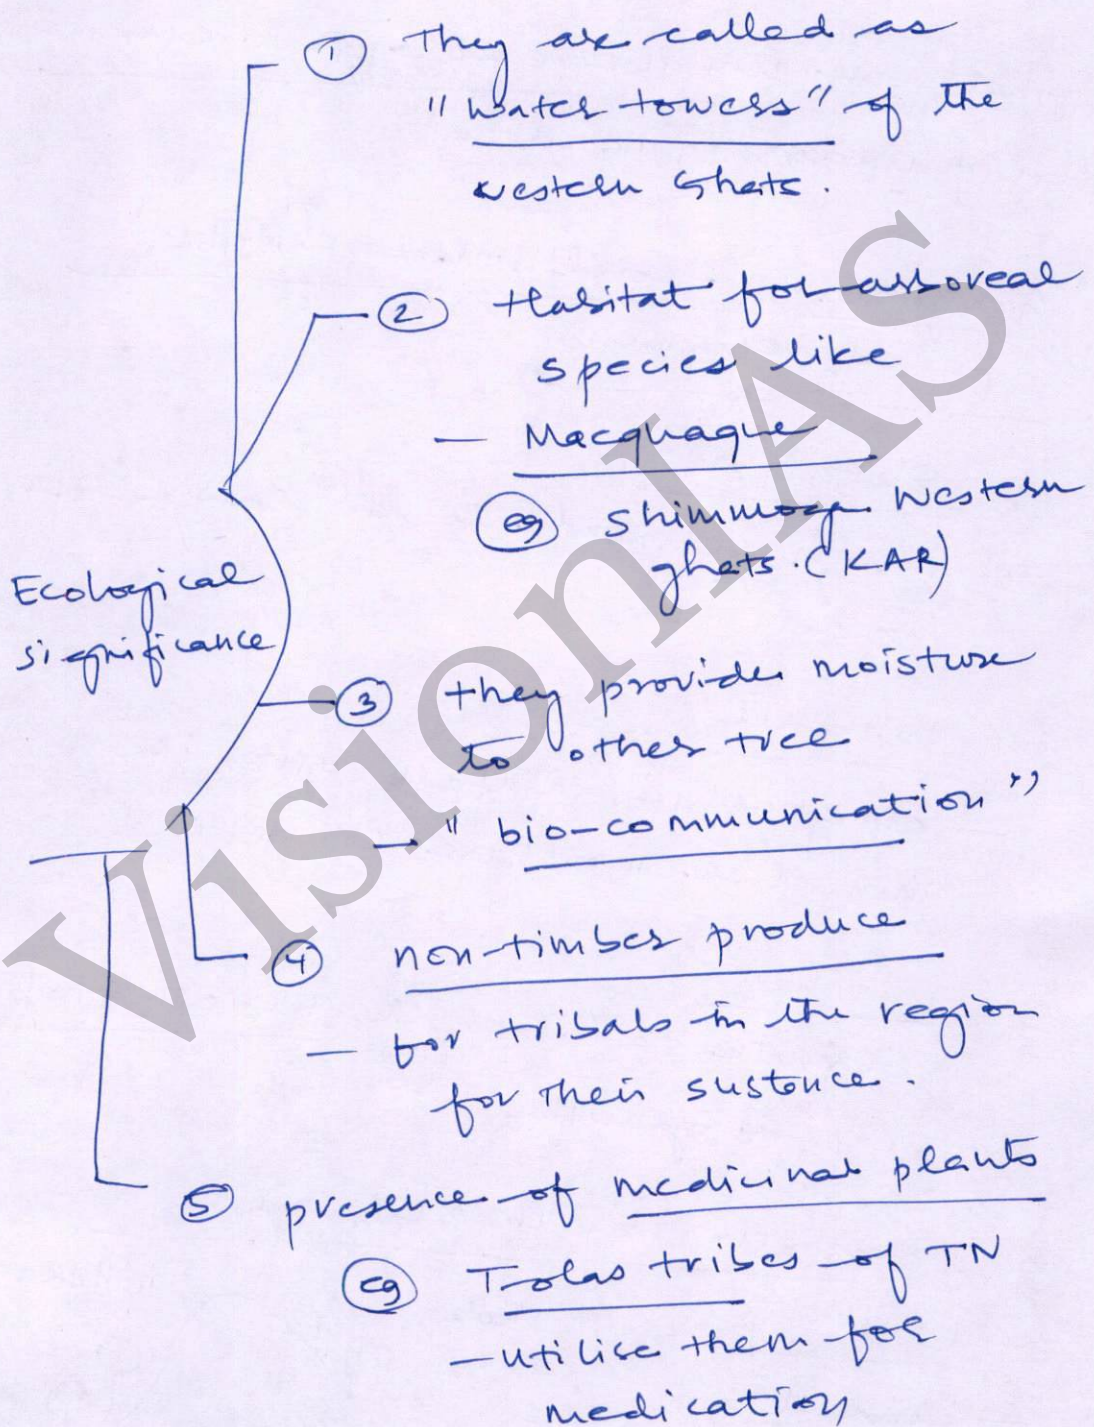 ① They are called as
"water towers" of the
western Ghats.
② Habitat for arboreal
species like
— Macquaque
eg Shimmoga Western
ghats. (KAR)
Ecological
significance
③ they provide moisture
to other tree
→ "bio-communication"
④ non-timber produce
— for tribals in the region
for their sustence.
⑤ presence of medicinal plants
eg Tolas tribes of TN
— utilise them for
medication
VisionIAS